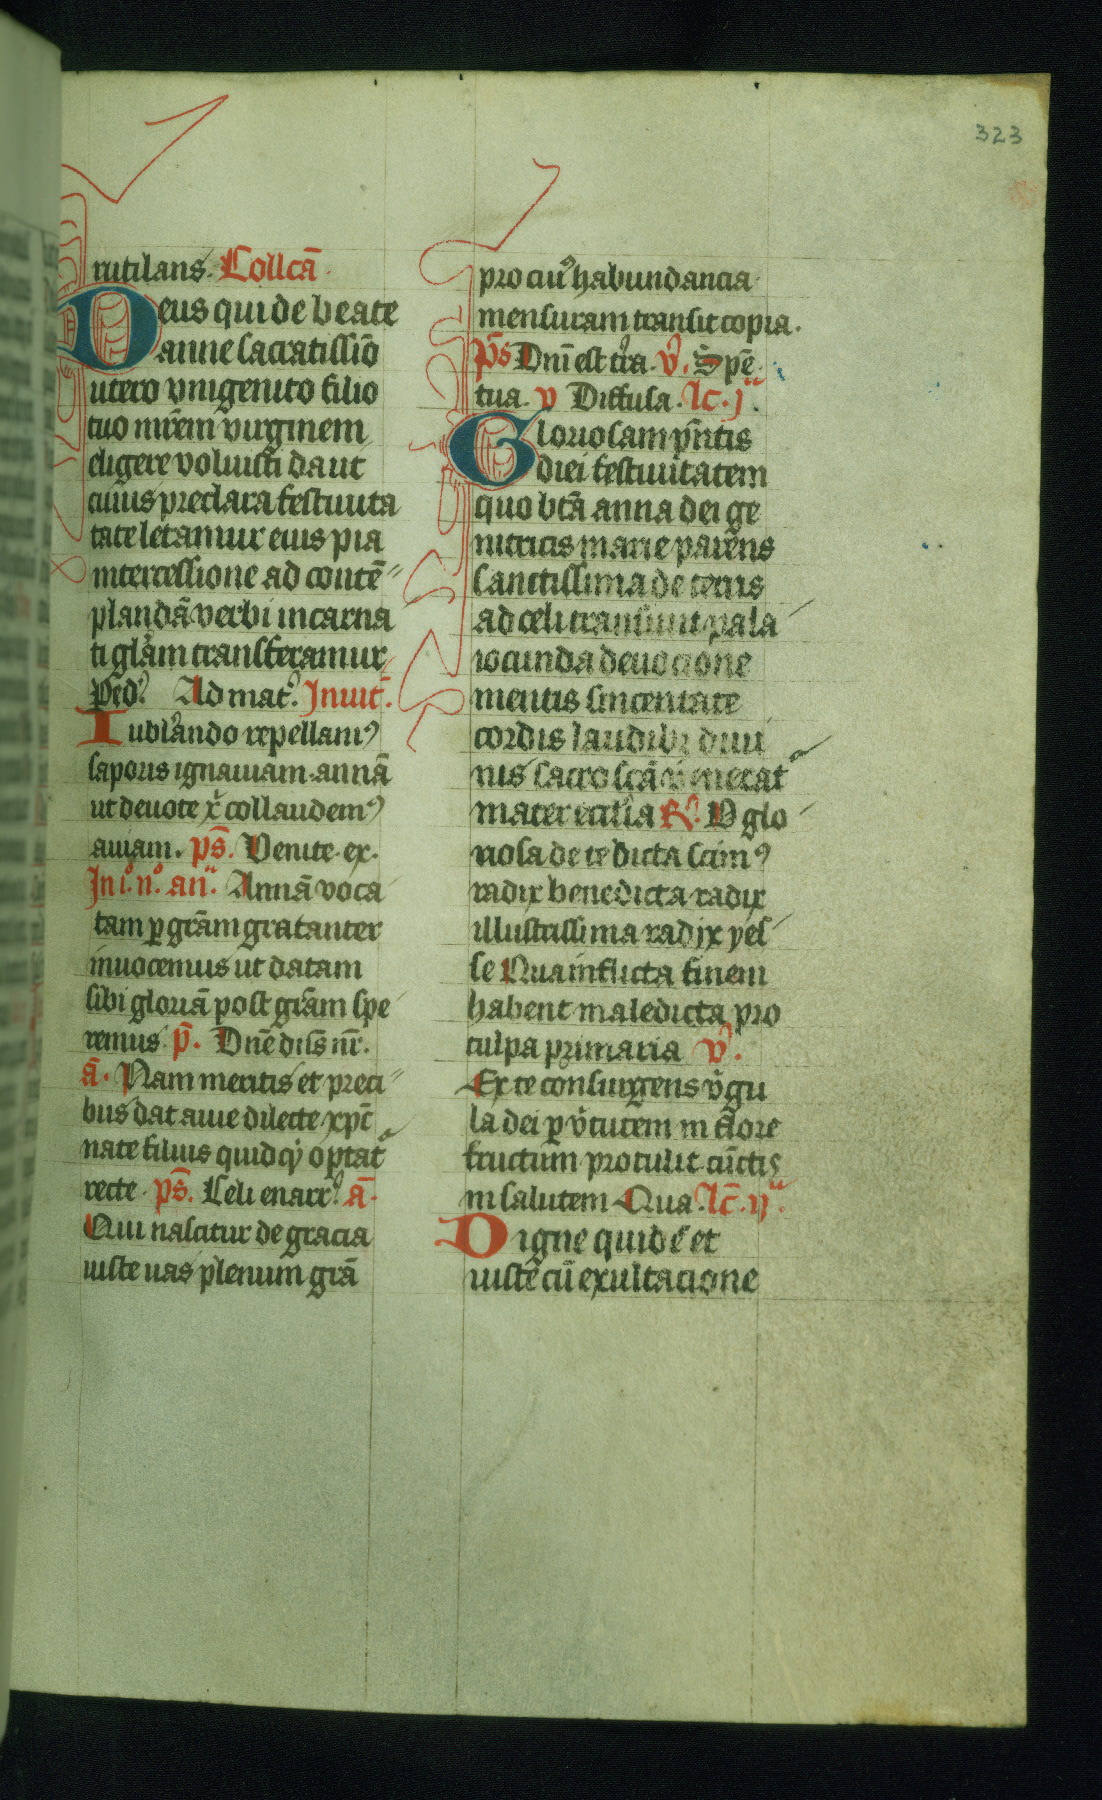 323
rutilans. Collcā
Deus qui de beate
anne sacratissīō
utero vnigenito filio
tuo mr̄em virginem
eligere voluisti da ut
cuius preclara festiuita
tate letamur eius pia
intercessione ad contē
plandā verbi incarna
ti glām transferamur
Ped. Ad mat. Inuit.
Iublando repellamꝰ
saporis ignauiam annā
ut deuote xp̄ collaudemꝰ
auiam. ps̄. Venite. ex.
In i. n. an. Annā voca
tam ꝑ grām gratanter
inuocemus ut datam
sibi gloriā post grām spe
remus p̄. Dn̄e dn̄s nr̄.
ā. Nam meritis et preci
bus dat aue dilecte xp̄c
nate filius quidqꝫ optat
recte. ps̄. Celi enarr. ā.
Qui nascitur de gracia
iuste uas plenum grā
pro ciuꝰ habundancia
mensuram transit copia.
ps̄ Dn̄i est tr̄a. v. Spē
tua. v Diffusa. lc̄. j
Gloriosam pn̄tis
diei festiuitatem
quo btā anna dei ge
nitricis marie parens
sanctissima de terris
ad celi transiuit pala
iocunda deuocione
mentis sinceritate
cordis laudibꝫ diui
nis sacroscā venerat
mater ecclīa R. O glo
riosa de te dicta scimꝰ
radix benedicta radix
illustrissima radix yes
se Qua inflicta finem
habent maledicta pro
culpa primaria v.
Ex te consurgens v̄gu
la dei ꝑ v̄tutem in flore
fructum protulit cūctis
in salutem Qua. lc̄. ij.
Digne quidē et
iuste cū exultacione